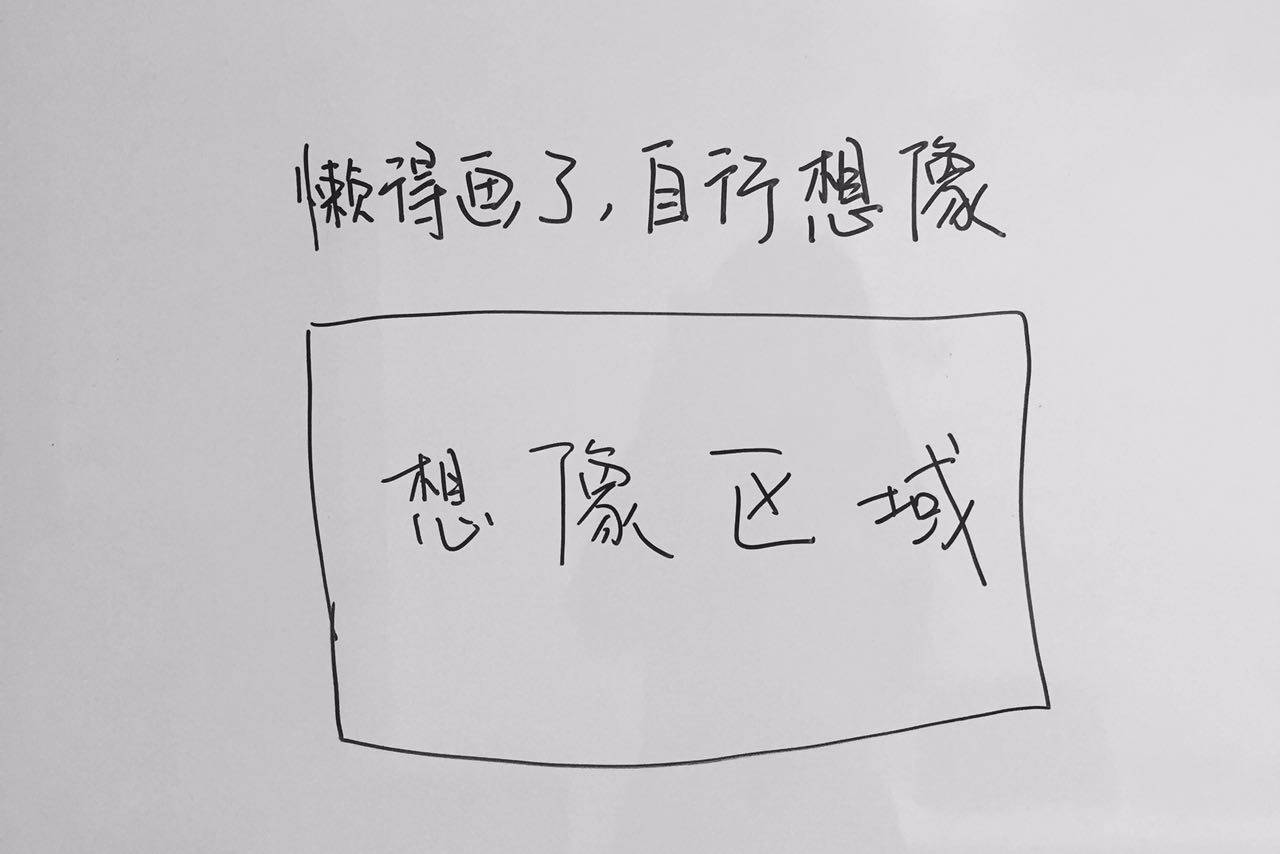 懒得画了,自行想像
想像区域